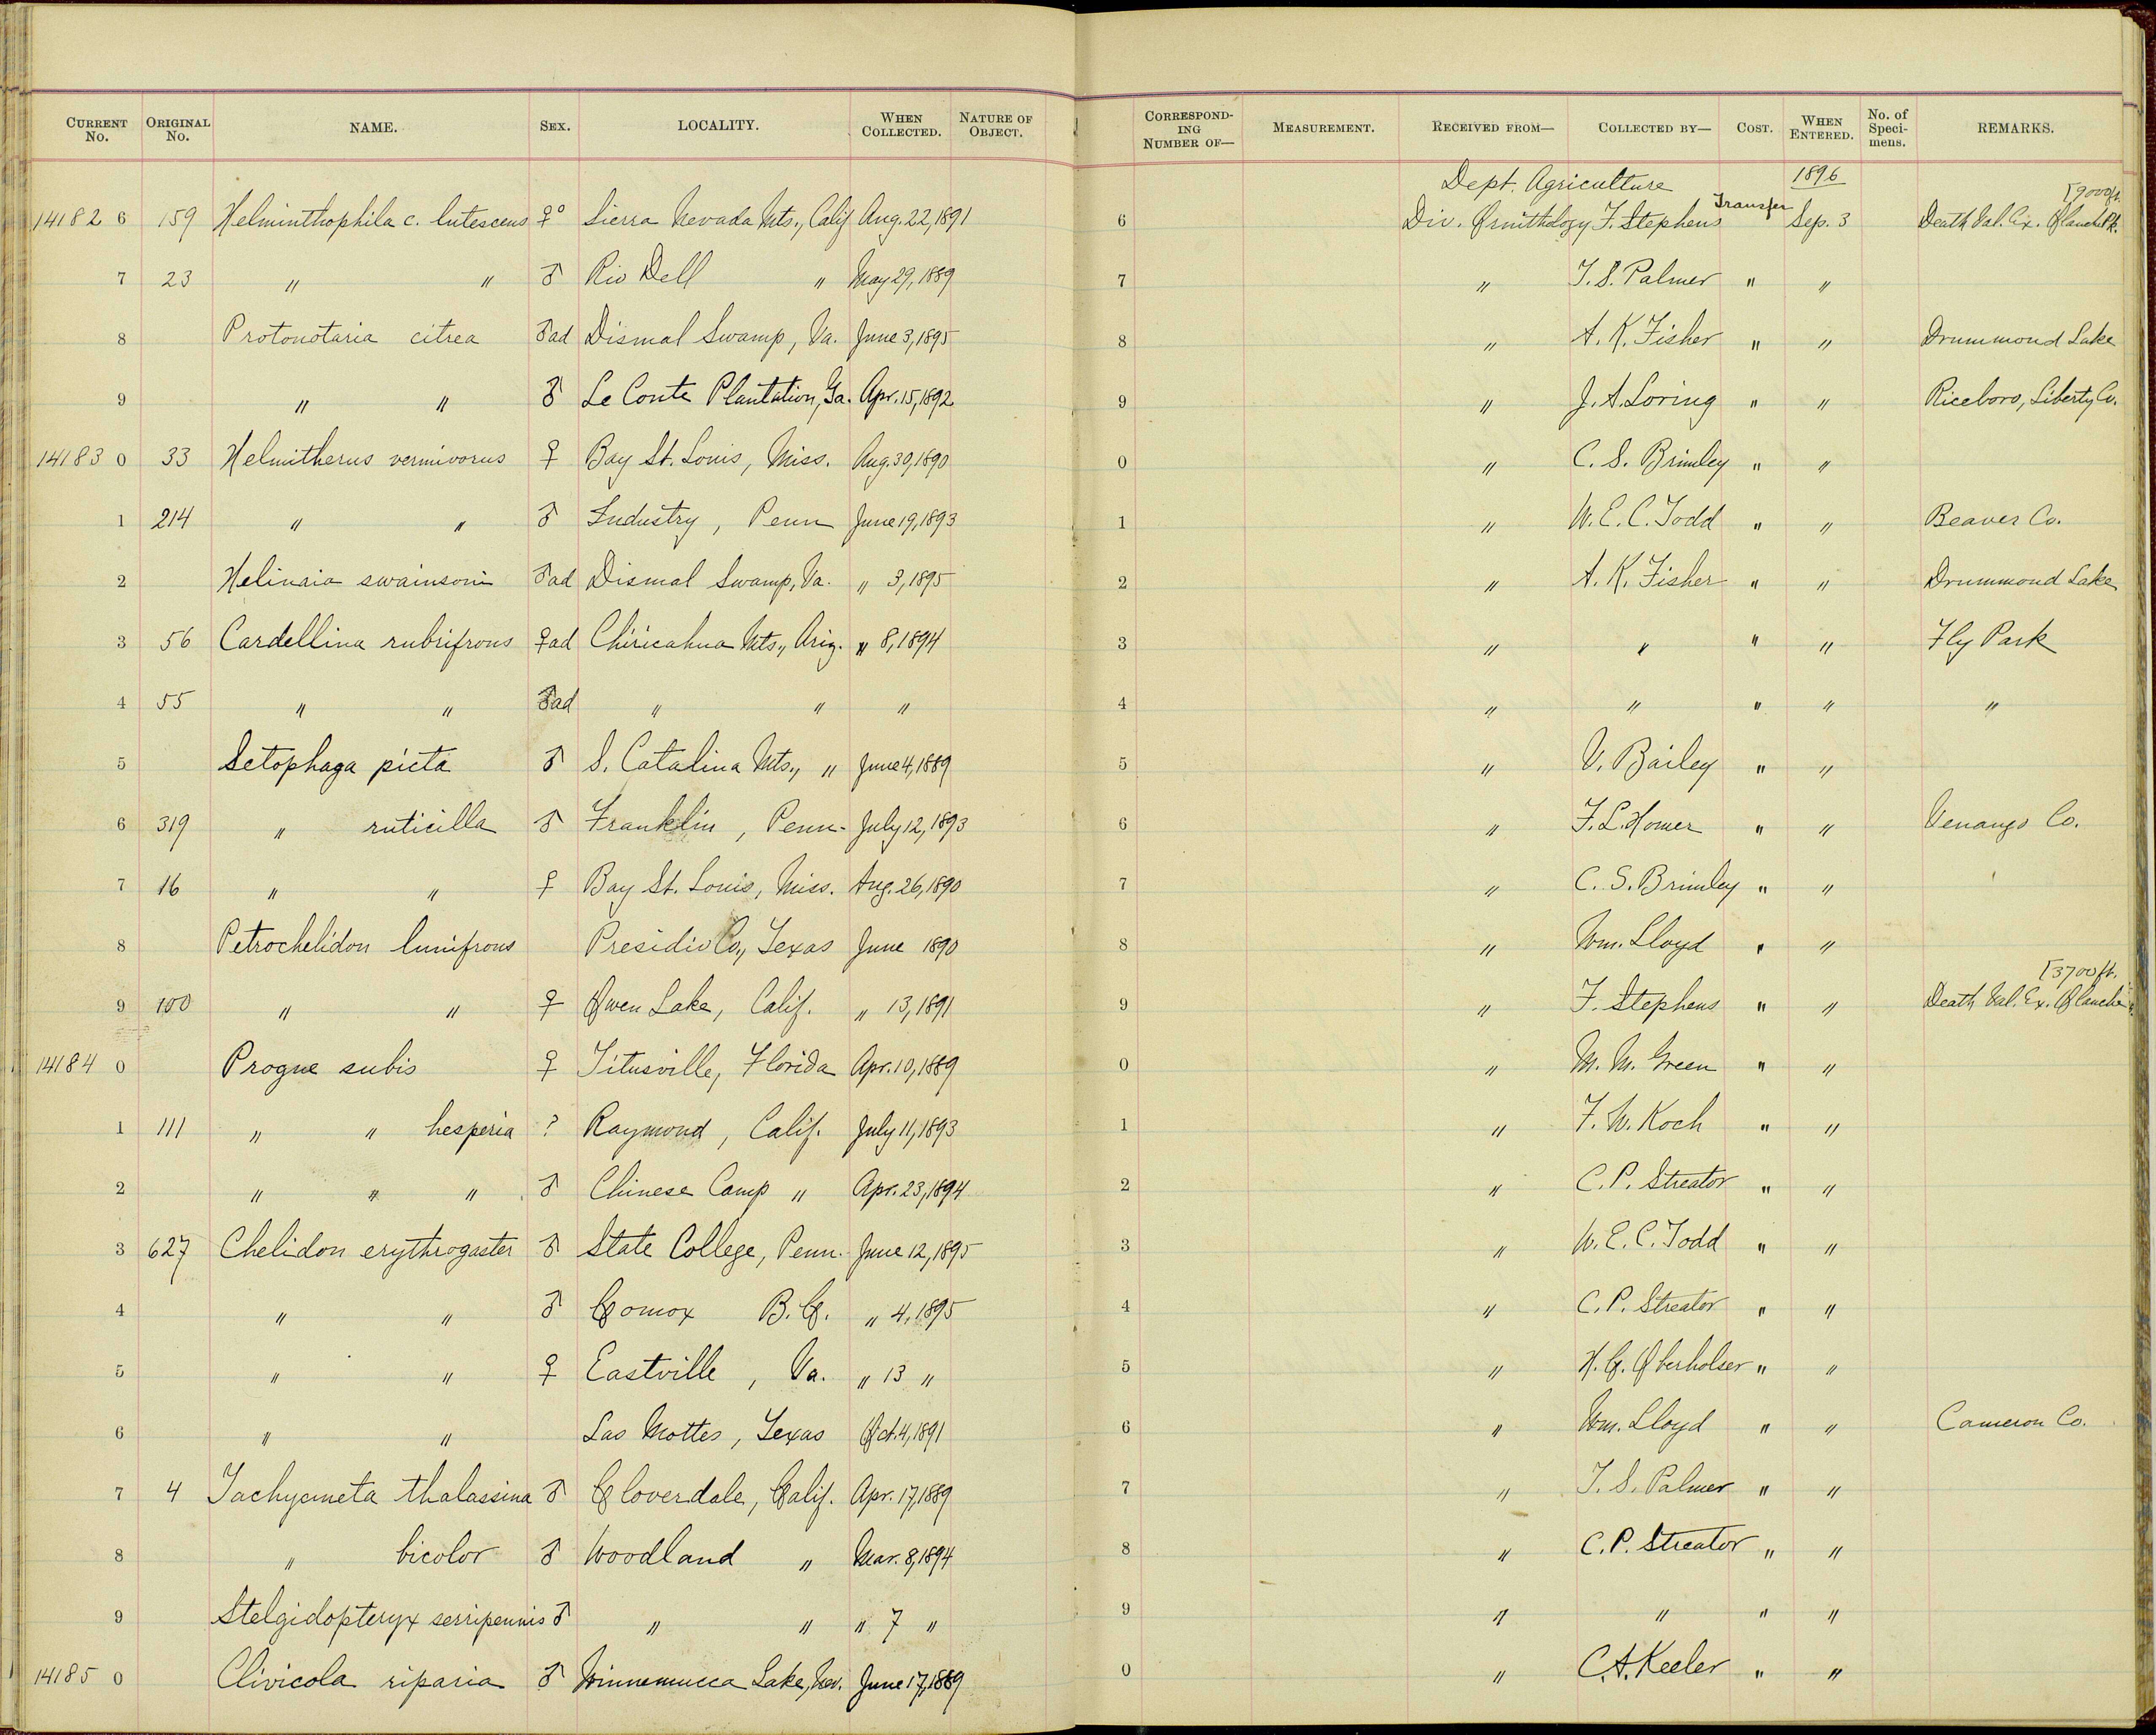 CURRENT No. ORIGINAL No. NAME. SEX. LOCALITY. WHEN COLLECTED. NATURE OF OBJECT. CORRESPONDING NUMBER OF— MEASUREMENT. RECEIVED FROM— COLLECTED BY— COST. WHEN ENTERED. No. of Specimens. REMARKS.
Dept. Agriculture 1896 [9000 ft.
14182 6 159 Helminthophila c. lutescens ♀° Sierra Nevada Mts., Calif Aug. 22, 1891 6 Div. Ornithology F. Stephens Transfer Sep. 3 Death Val. Ex. Olanche Pk.
7 23 " " ♂ Rio Dell " May 29, 1889 7 " T. S. Palmer " "
8 Protonotaria citrea ♂ad Dismal Swamp, Va. June 3, 1895 8 " A. K. Fisher " " Drummond Lake
9 " " ♂ Le Conte Plantation, Ga. Apr. 15, 1892 9 " J. A. Loring " " Riceboro, Liberty Co.
14183 0 33 Helmitherus vermivorus ♀ Bay St. Louis, Miss. Aug. 30, 1890 0 " C. S. Brimley " "
1 214 " " ♂ Industry, Penn June 19, 1893 1 " W. E. C. Todd " " Beaver Co.
2 Helinaia swainsoni ♂ad Dismal Swamp, Va. " 3, 1895 2 " A. K. Fisher " " Drummond Lake
3 56 Cardellina rubrifrons ♀ad Chiricahua Mts., Ariz. " 8, 1894 3 " " " " Fly Park
4 55 " " ♂ad " " " 4 " " " " "
5 Setophaga picta ♂ S. Catalina Mts., " June 4, 1889 5 " V. Bailey " "
6 319 " ruticilla ♂ Franklin, Penn. July 12, 1893 6 " F. L. Homer " " Venango Co.
7 16 " " ♀ Bay St. Louis, Miss. Aug. 26, 1890 7 " C. S. Brimley " "
8 Petrochelidon lunifrons Presidio Co., Texas June 1890 8 " Wm. Lloyd " "
[3700 ft.
9 100 " " ♀ Owen Lake, Calif. " 13, 1891 9 " F. Stephens " " Death Val. Ex. Olanche
14184 0 Progne subis ♀ Titusville, Florida Apr. 10, 1889 0 " M. M. Green " "
1 111 " " hesperia ? Raymond, Calif. July 11, 1893 1 " F. W. Koch " "
2 " " " ♂ Chinese Camp " Apr. 23, 1894 2 " C. P. Streator " "
3 627 Chelidon erythrogaster ♂ State College, Penn. June 12, 1895 3 " W. E. C. Todd " "
4 " " ♂ Comox B. C. " 4, 1895 4 " C. P. Streator " "
5 " " ♀ Eastville, Va. " 13 " 5 " H. C. Oberholser " "
6 " " Las Mottes, Texas Oct. 4, 1891 6 " Wm. Lloyd " " Cameron Co.
7 4 Tachycineta thalassina ♂ Cloverdale, Calif. Apr. 17, 1889 7 " T. S. Palmer " "
8 " bicolor ♂ Woodland " Mar. 8, 1894 8 " C. P. Streator " "
9 Stelgidopteryx serripennis ♂ " " " 7 " 9 " " " "
14185 0 Clivicola riparia ♂ Winnemucca Lake, Nev. June 17, 1889 0 " C. A. Keeler " "